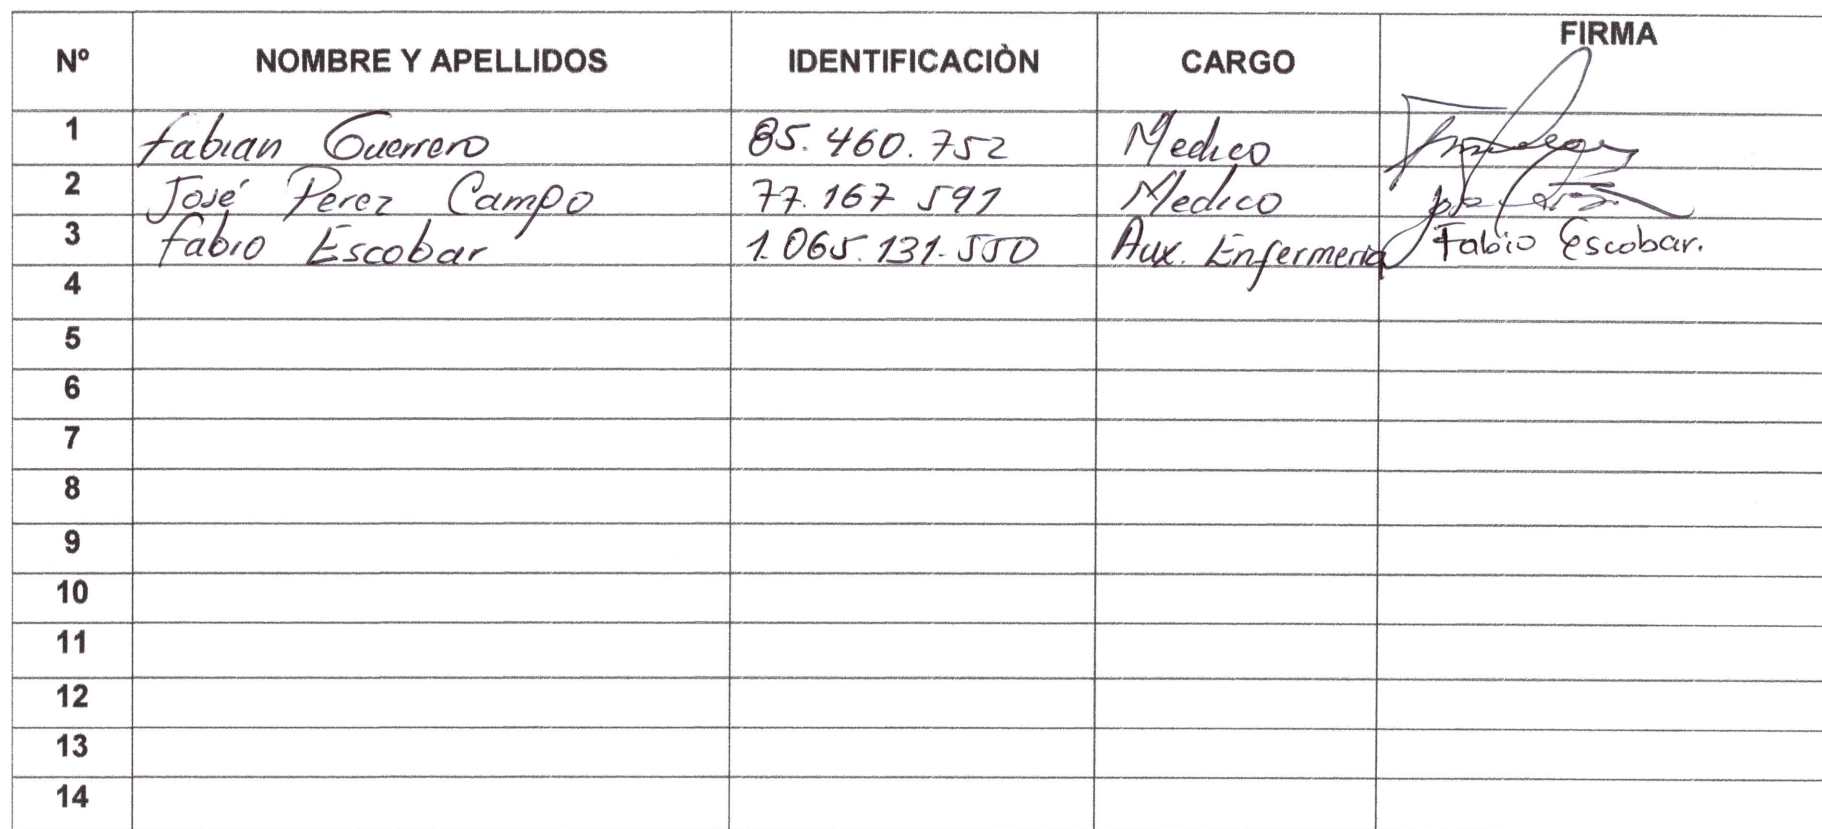 Nº NOMBRE Y APELLIDOS IDENTIFICACIÒN CARGO FIRMA
1 Fabian Guerrero 85.460.752 Medico
2 José Perez Campo 77.167 591 Medico
3 Fabio Escobar 1.065.131.550 Aux. Enfermeria Fabio Escobar.
4
5
6
7
8
9
10
11
12
13
14